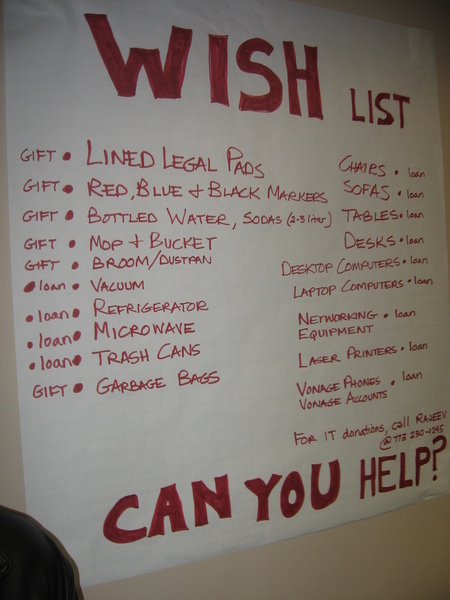 WISH LIST
GIFT • LINED LEGAL PADS
GIFT • RED, BLUE & BLACK MARKERS
GIFT • BOTTLED WATER, SODAS (2-3 liter)
GIFT • MOP & BUCKET
GIFT • BROOM/DUSTPAN
• loan • VACUUM
• loan • REFRIGERATOR
• loan • MICROWAVE
• loan • TRASH CANS
GIFT • GARBAGE BAGS
CHAIRS • loan
SOFAS • loan
TABLES • loan
DESKS • loan
DESKTOP COMPUTERS • loan
LAPTOP COMPUTERS • loan
NETWORKING • loan
EQUIPMENT
LASER PRINTERS • loan
VONAGE PHONES • loan
VONAGE ACCOUNTS
FOR IT donations, call RAJEEV
@ 773 230-1245
CAN YOU HELP?